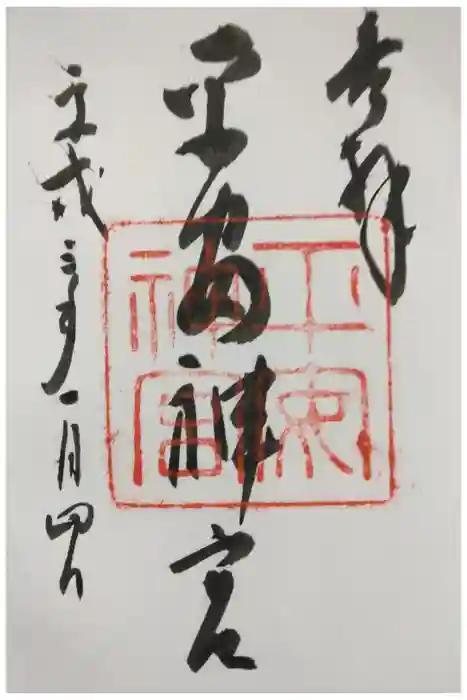 奉拝
平安神宮
平成三十年一月四日
平安神宮